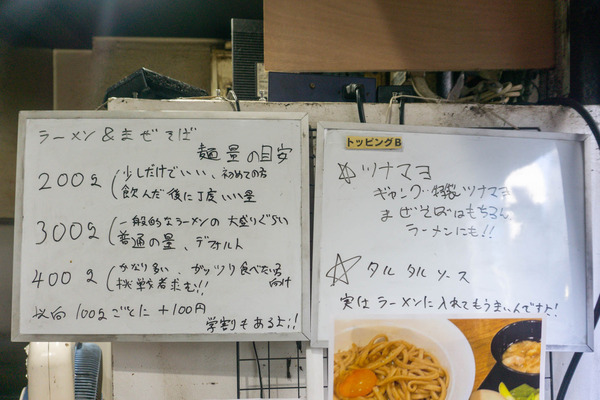 ラーメン&まぜそば
麺量の目安
200g
少しだけでいい、初めての方
飲んだ後に丁度いい量
300g
一般的なラーメンの大盛りぐらい
普通の量、デフォルト
400g
かなり多い、ガッツリ食べたい方向け
挑戦者求む!!
以向 100gごとに +100円
学割もあるよ!!
トッピングB
☆ ツナマヨ
ギャング特製ツナマヨ
まぜそばはもちろん
ラーメンにも!!
☆ タルタルソース
実はラーメンに入れてもうまいんですよ!